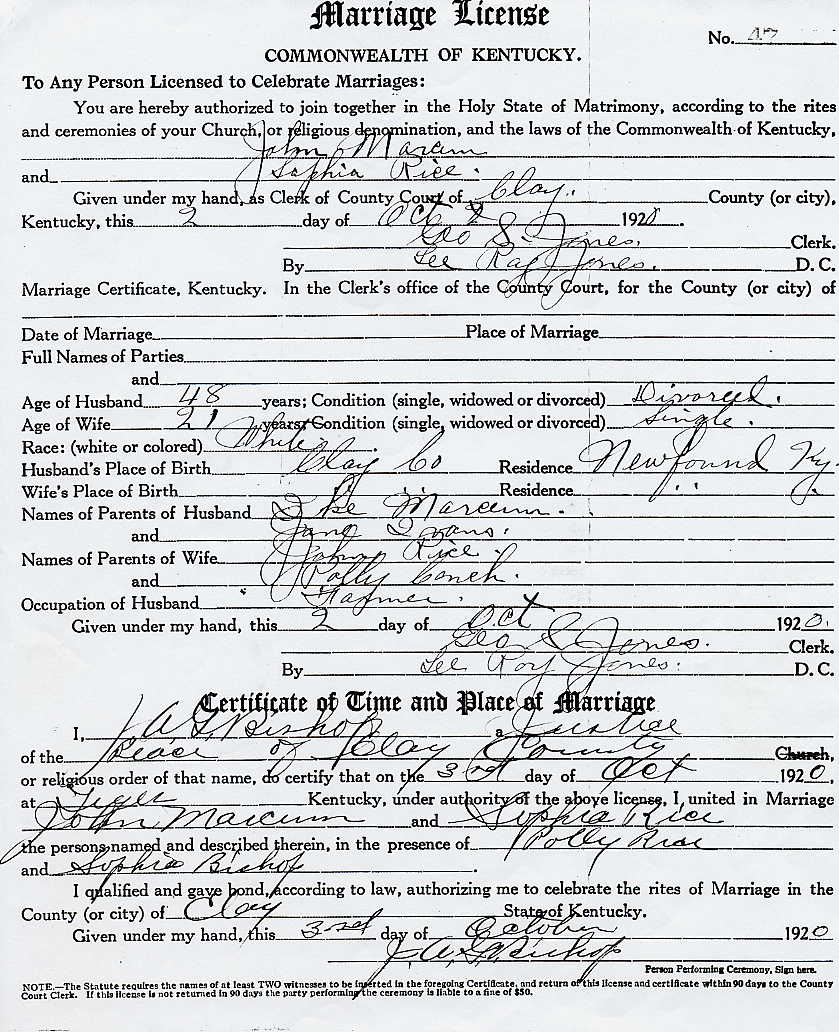 Marriage License
No. 47
COMMONWEALTH OF KENTUCKY.
To Any Person Licensed to Celebrate Marriages:
You are hereby authorized to join together in the Holy State of Matrimony, according to the rites
and ceremonies of your Church, or religious denomination, and the laws of the Commonwealth of Kentucky,
John Marcum
and Sophia Rice.
Given under my hand, as Clerk of County Court of Clay. County (or city),
Kentucky, this 2 day of Oct 1920.
Geo S. Jones. Clerk.
By Lee Roy Jones. D. C.
Marriage Certificate, Kentucky. In the Clerk's office of the County Court, for the County (or city) of
Date of Marriage Place of Marriage
Full Names of Parties
and
Age of Husband 48 years; Condition (single, widowed or divorced) Divorced.
Age of Wife 21 years; Condition (single, widowed or divorced) Single.
Race: (white or colored) White
Husband's Place of Birth Clay Co Residence Newfound Ky.
Wife's Place of Birth " " " Residence " "
Names of Parents of Husband Ike Marcum.
and Jane Ivans.
Names of Parents of Wife John Rice.
and Polly Couch.
Occupation of Husband Farmer.
Given under my hand, this 2 day of Oct 1920.
Geo S Jones. Clerk.
By Lee Roy Jones. D. C.
Certificate of Time and Place of Marriage
I, J. A. G. Bishop a Justice
of the Peace of Clay County Church,
or religious order of that name, do certify that on the 3rd day of Oct 1920,
at Kentucky, under authority of the above license, I united in Marriage
John Marcum and Sophia Rice
the persons named and described therein, in the presence of Polly Rice
and Sophia Bishop.
I qualified and gave bond, according to law, authorizing me to celebrate the rites of Marriage in the
County (or city) of Clay State of Kentucky.
Given under my hand, this 3rd day of October 1920
J. A. G. Bishop
Person Performing Ceremony, Sign here.
NOTE.—The Statute requires the names of at least TWO witnesses to be inserted in the foregoing Certificate, and return of this license and certificate within 90 days to the County
Court Clerk. If this license is not returned in 90 days the party performing the ceremony is liable to a fine of $50.